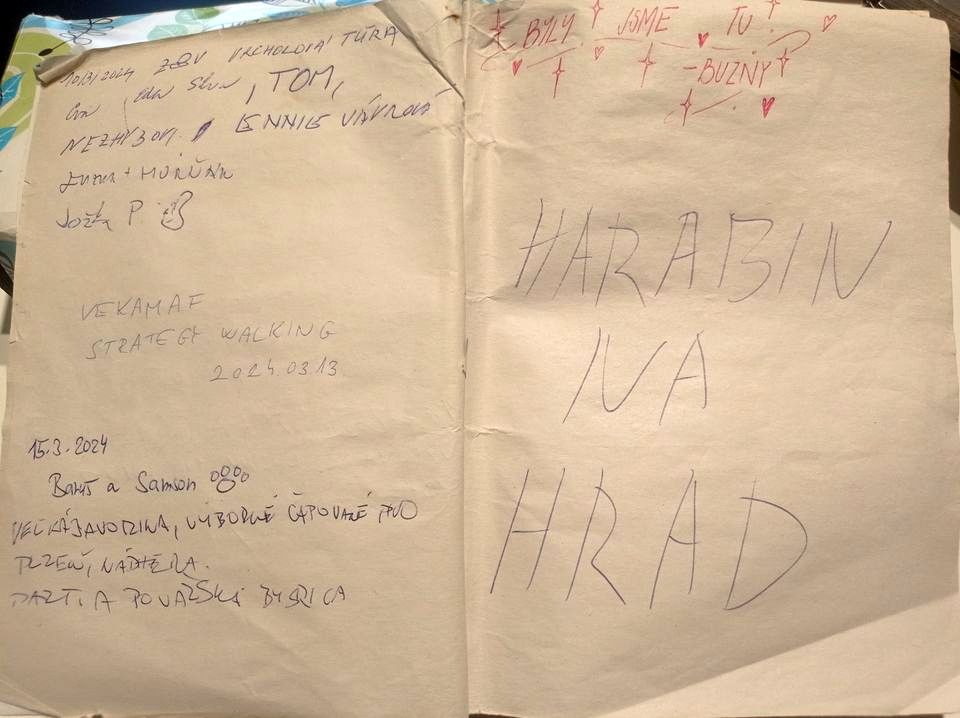 10/3/2024 ZBV VRCHOLOVÁ TÚRA
, TOM,
ENNIE VÁVROVÁ
+ MURŇÁK
Jožka P.
VEKAMAF
STRATEGY WALKING
2024.03.13
15.3.2024
a Samson
VEĽKÁ JAVORINA, VÝBORNÉ ČAPOVANÉ
PLZEŇ, NÁDHERA.
A POVAŽSKÁ BYSRICA
BYLY JSME TU
-BUZNY
HARABIN
NA
HRAD